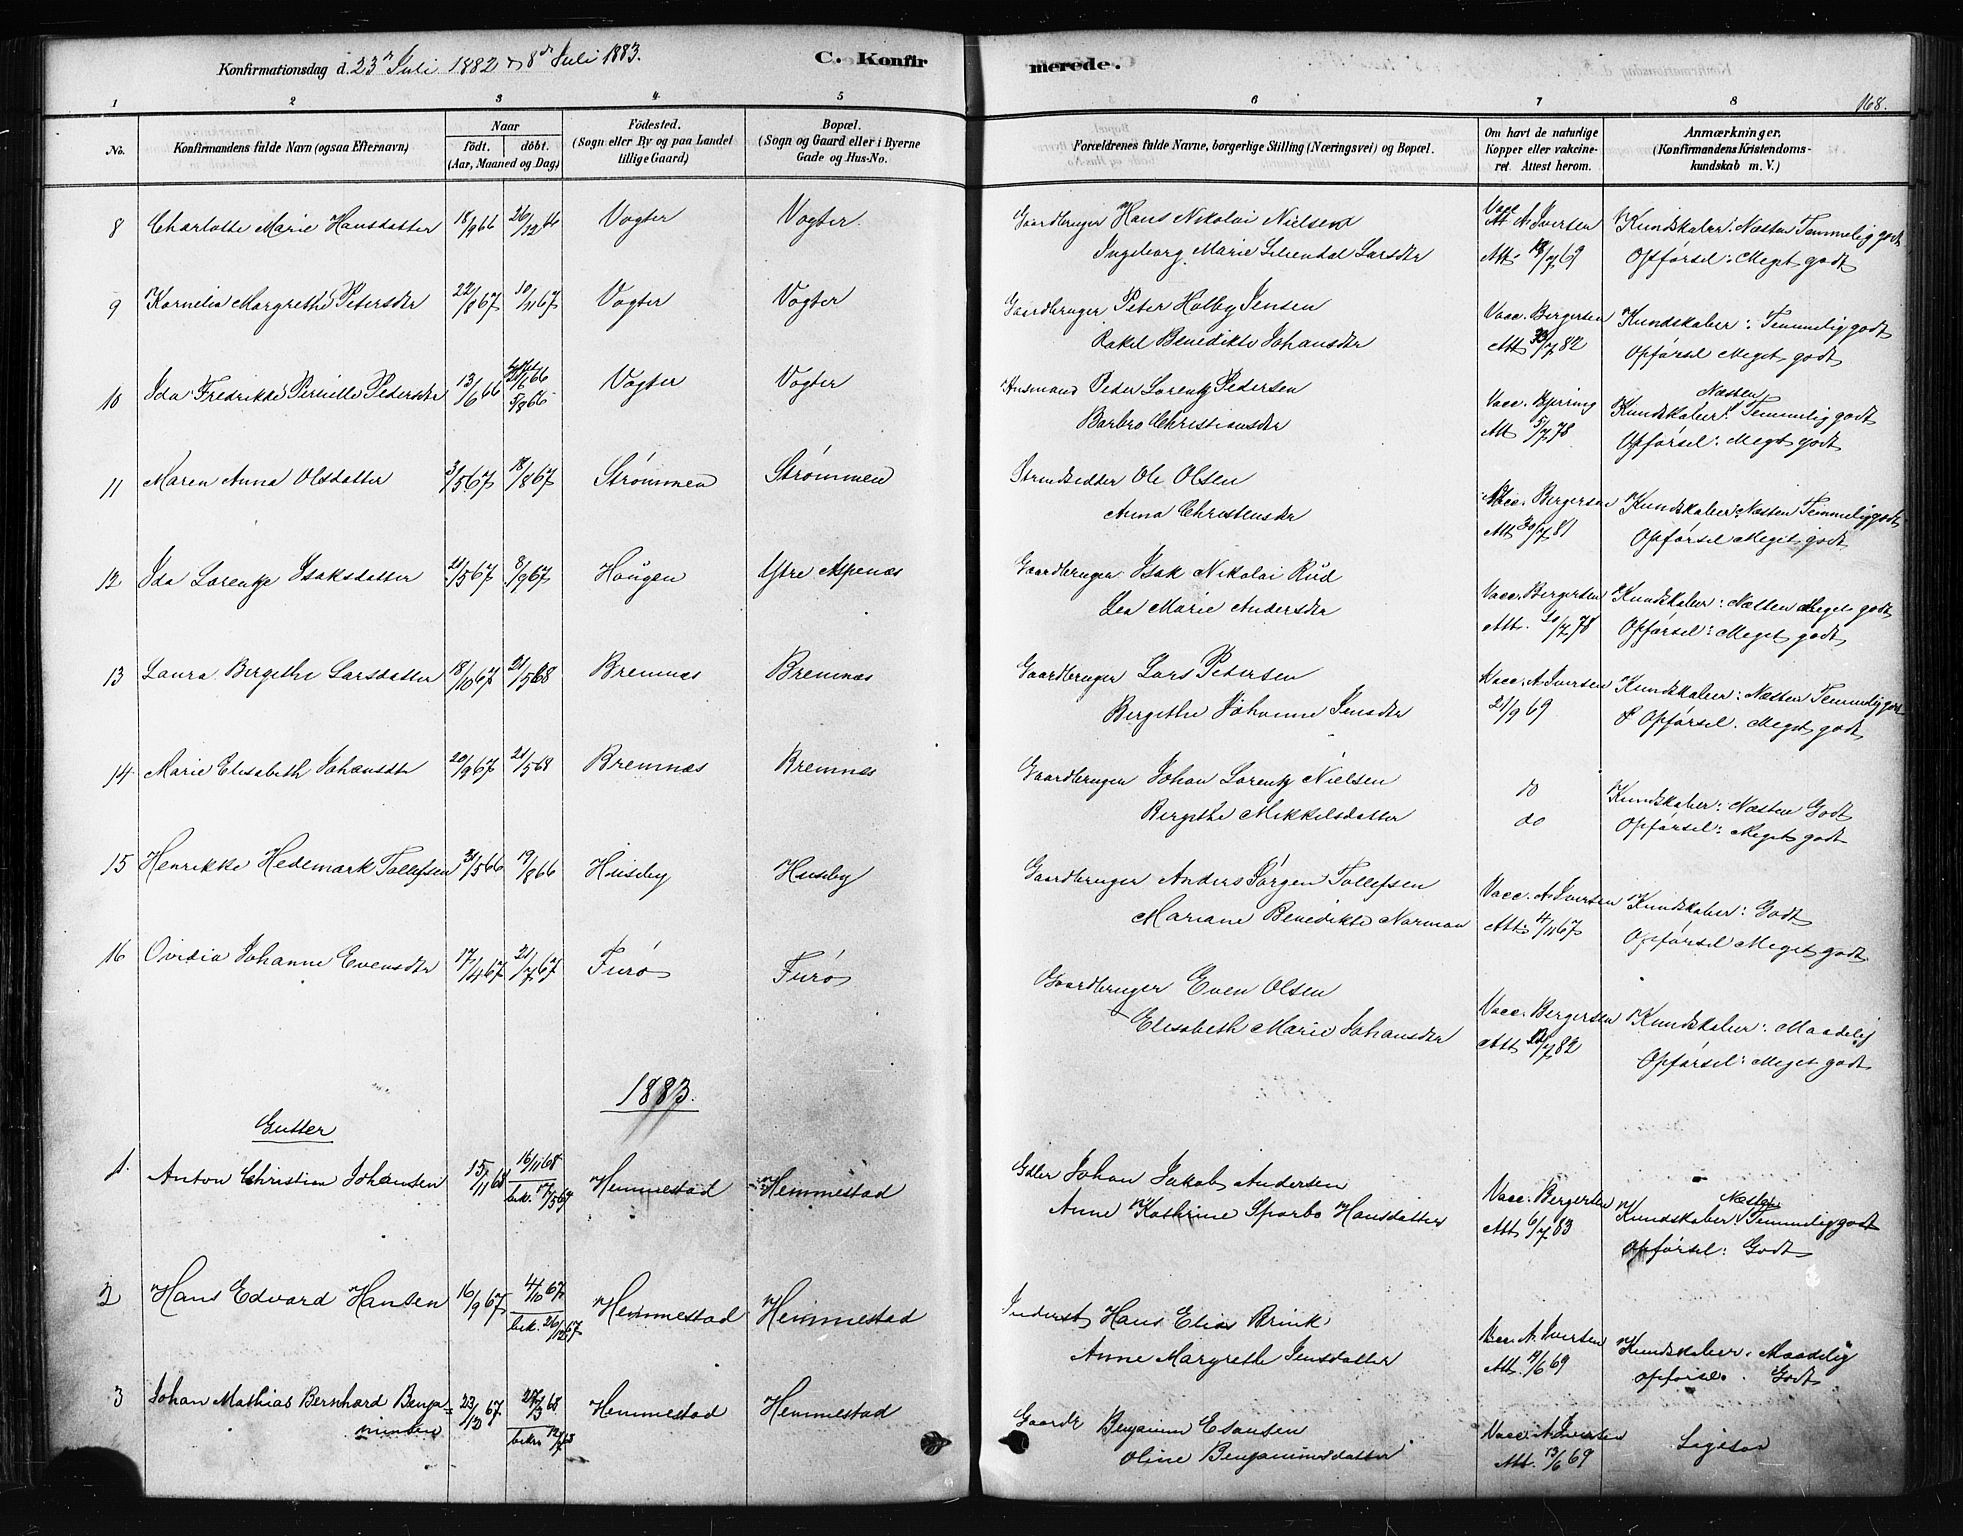 Konfirmationsdag d. 23de Juli 1882 & 8de Juli 1883.
C. Konfirmerede.
168.
1 2 3 4 5 6 7 8
No.
Konfirmandens fulde Navn (ogsaa Efternavn)
Naar
født. døbt.
(Aar, Maaned og Dag)
Fødested.
(Sogn eller By og paa Landet
tillige Gaard)
Bopæl.
(Sogn og Gaard eller i Byerne
Gade og Hus-No.
Forældrenes fulde Navne, borgerlige Stilling (Næringsvei) og Bopæl.
Om havt de naturlige
Kopper eller vakcine-
ret. Attest herom.
Anmærkninger.
(Konfirmandens Kristendoms-
kundskab m. V.)
8 Charlotte Marie Hansdatter 18/9 66 26/12 66 Vogter Vogter Gaardbruger Hans Nikolai Nielsen Vacc. A. Iversen Kundskaber: Næsten Temmelig godt
Ingeborg Marie Liliendal Larsdtr Att. 18/7 69 Opførsel: Meget godt
9 Kornelia Margrethe Petersdtr 22/8 67 10/11 67 Vogter Vogter Gaardbruger Peter Holby Jensen Vacc. Bergersen Kundskaber: Temmelig godt
Rakel Benedikte Johansdtr Att 30/7 82 Opførsel Meget godt
10 Ida Fredrikke Pernille Pedersdtr 13/6 66 5/8 66 Vogter Vogter Husmand Peder Lorentz Pedersen Vacc. Bjerring Kundskaber: Næsten Temmelig godt
Barbro Christiansdtr Att 5/7 78 Opførsel: Meget godt
11 Maren Anna Olsdatter 3/5 67 18/8 67 Strømmen Strømmen Strandsidder Ole Olsen Vacc. Bergersen Kundskaber: Næsten Temmelig godt
Anna Christensdtr Att 30/7 81 Opførsel Meget godt
12 Ida Lorentze Isaksdatter 21/5 67 8/9 67 Haugen Ytre Aspenæs Gaardbruger Isak Nikolai Rud Vacc. Bergersen Kundskaber: Næsten Meget godt
Lea Marie Andersdtr Att. 20/7 78 Opførsel: Meget godt
13 Laura Bergithe Larsdatter 18/10 67 21/5 68 Bremnæs Bremnæs Gaardbruger Lars Petersen Vacc. A. Iversen Kundskaber: Næsten Temmelig godt
Bergithe Johanne Jensdtr 21/9 69 Opførsel: Meget godt
14 Marie Elisabeth Johansdtr 20/9 67 21/5 68 Bremnæs Bremnæs Gaardbruger Johan Lorentz Nielsen do Kundskaber: Næsten Godt
Bergithe Mikkelsdatter do Opførsel: Meget godt
15 Henrikke Hedemark Tollefsen 31/5 66 19/8 66 Huseby Huseby Gaardbruger Anders Jørgen Tollefsen Vacc. A. Iversen Kundskaber: Godt
Mariane Benedikte Norman Att: 4/11 67 Opførsel Meget godt
16 Ovidia Johanne Evensdtr 17/4 67 21/7 67 Furø Furø Gaardbruger Even Olsen Vacc. Bergersen Kundskaber: Maadelig
Elisabeth Marie Johansdtr Att 12/7 82 Opførsel: Meget godt
1883.
Gutter
1. Anton Christian Johansen 15/11 68 16/11 68 bek. 17/5 69 Hemmestad Hemmestad Gdler Johan Jakob Andersen Vacc. Bergersen Kundskaber: Næsten Temmelig godt
Anne Kathrine Sparbo Hansdatter Att 6/7 83 Opførsel: Godt
2 Hans Edvard Hansen 16/9 67 4/10 67 bek. 26/12 67 Hemmestad Hemmestad Inderst Hans Elias Brink Vacc. A. Iversen Kundskaber: Maadelig
Anne Margrethe Jensdatter Att. 19/6 69 Opførsel: Godt
3 Johan Mathias Bernhard Benja- 23/12 67 68 Hemmestad Hemmestad Gaardb Benjamin Esausen Vacc. A. Iversen Ligesaa
minsen Oline Benjaminsdatter Att. 13/6 69